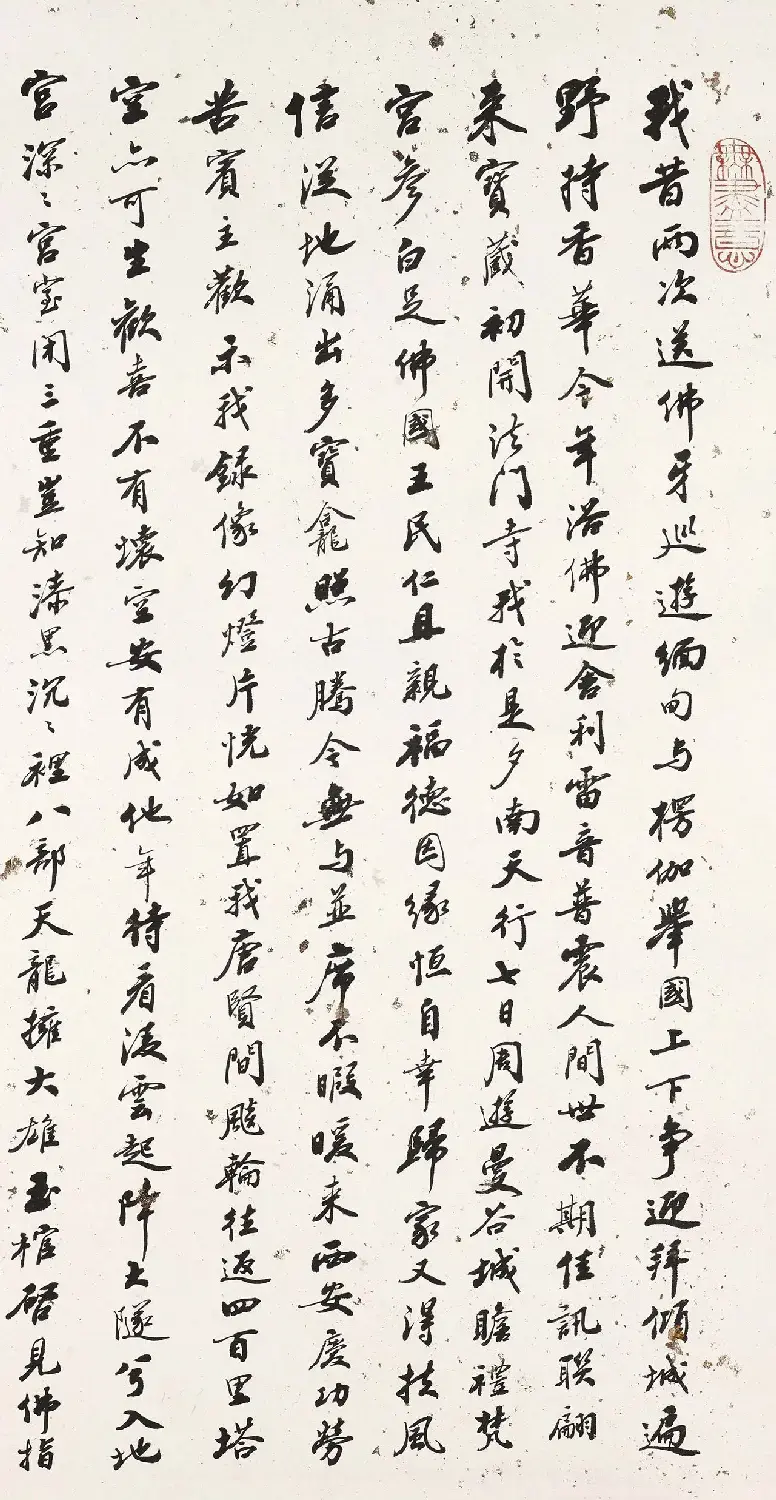 我昔兩次送佛牙巡遊緬甸与楞伽舉國上下争迎拜傾城遍
野持香華今年浴佛迎舍利雷音普震人間世不期佳訊联翩
来寶藏初開法门寺我於是夕南天行七日周遊曼谷城瞻禮梵
宫参白足佛國王民仁且親福德因缘恒自幸歸家又得扶風
信従地涌出多寶龕照古騰今無与並席不暇暖来西安慶功勞
苦賓主歡示我録像幻燈片恍如置我唐賢間飈輪往返四百里塔
空亦可生歡喜不有壞空安有成他年待看凌雲起降大隧兮入地
宫深〻宫室闭三重豈知漆黑沉〻裡八部天龍擁大雄玉棺啓見佛指